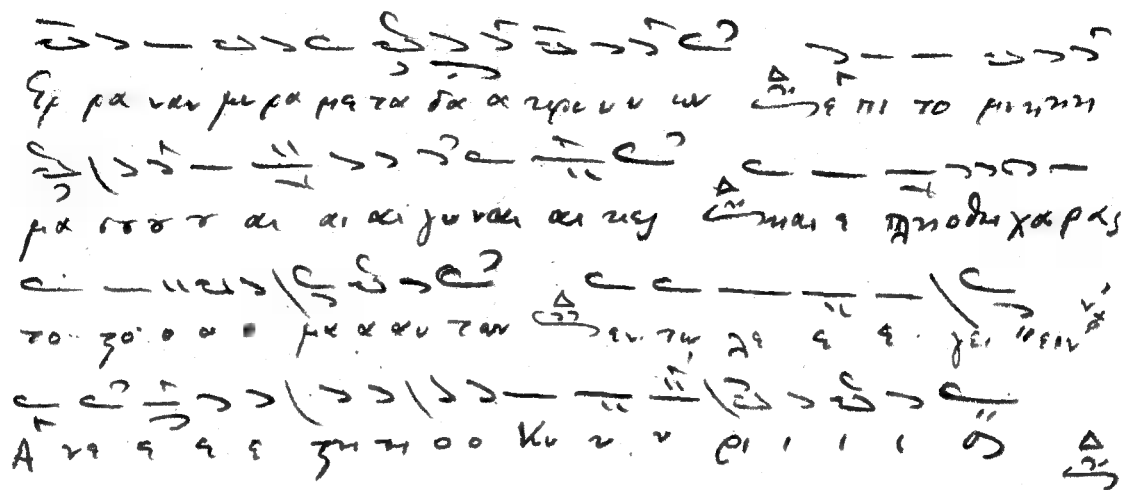 Ερ ρα ναν μυ ρα με τα δα α κρυ υ υ ων ε πι το μνη η η
μα σου ου αι αι αι γυ ναι αι κες και ε πλησθη χα ρας
το στο ο ο μα α αυ των εν τω λε ε ε γει ειν
Α νε ε ε ε στη η ο ο Κυ υ υ ρι ι ι ι ος